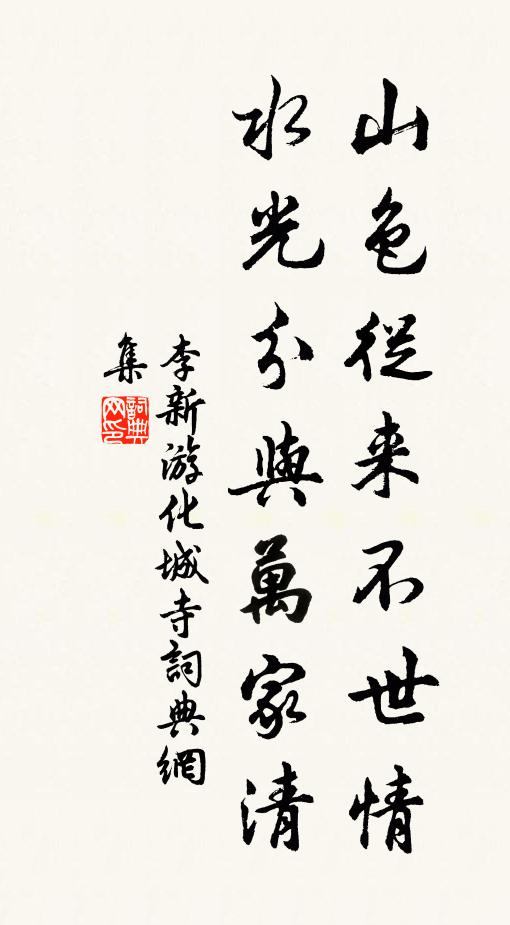 山色從来不世情
水光分與萬家清
李新游化城寺詞典網
集
詞典网印